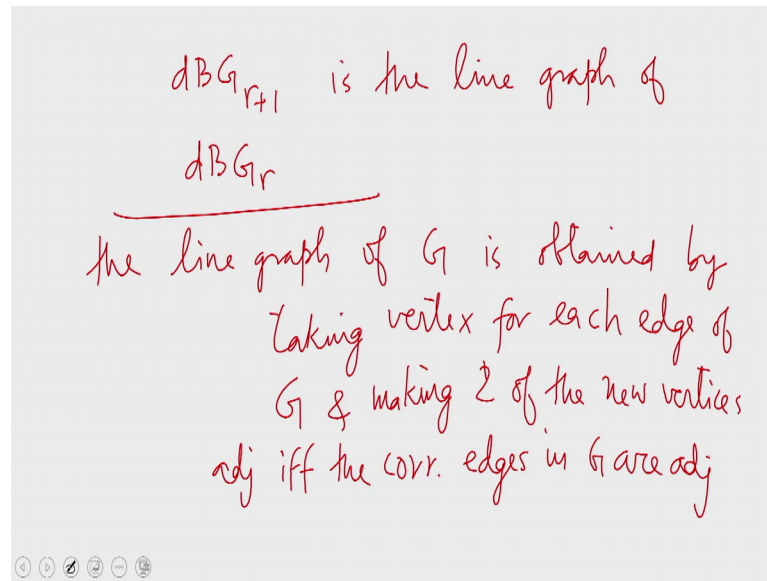 dBG_{r+1} is the line graph of
dBG_r
the line graph of G is obtained by
taking vertex for each edge of
G & making 2 of the new vertices
adj iff the corr. edges in G are adj